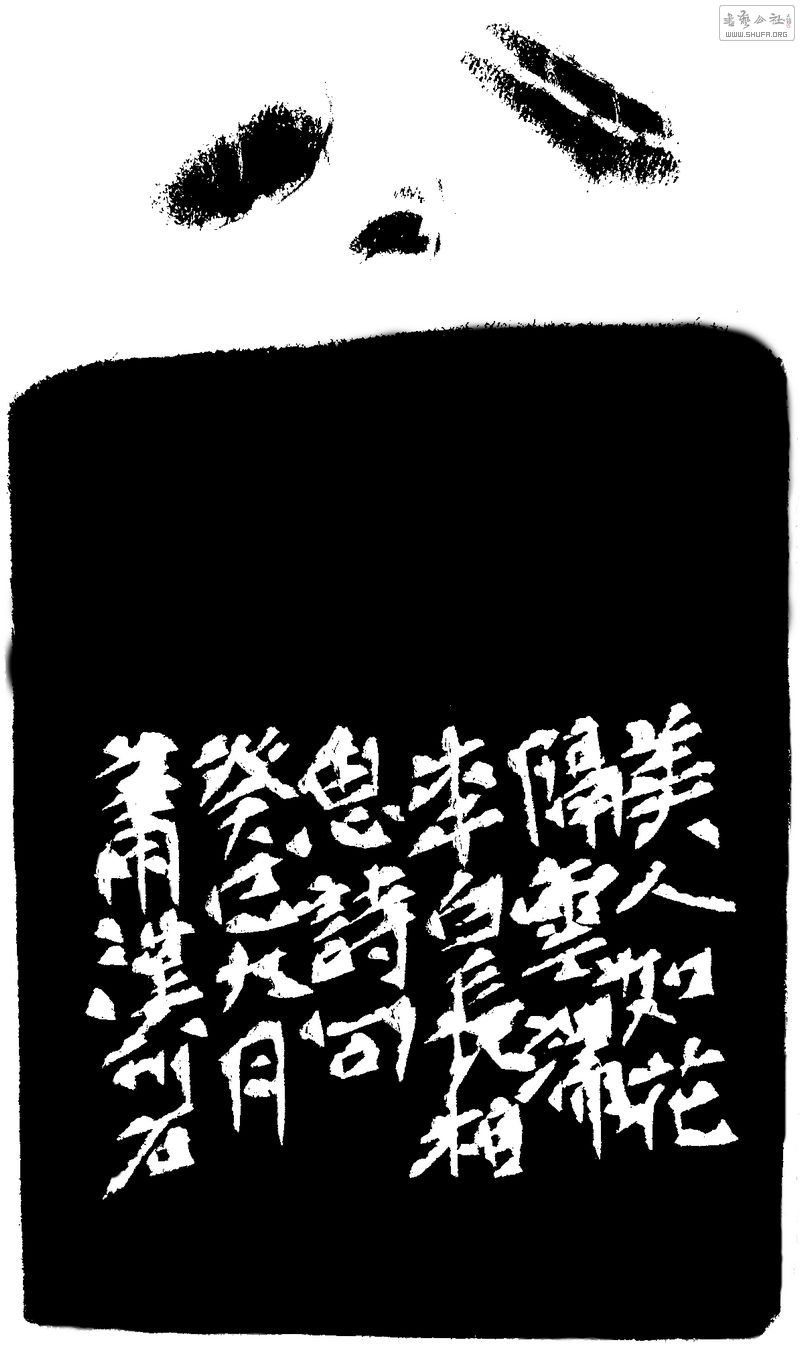 書藝公社
WWW.SHUFA.ORG
美人如花
隔雲端
李白長相
思詩句
癸巳九月
蕭漢刊石